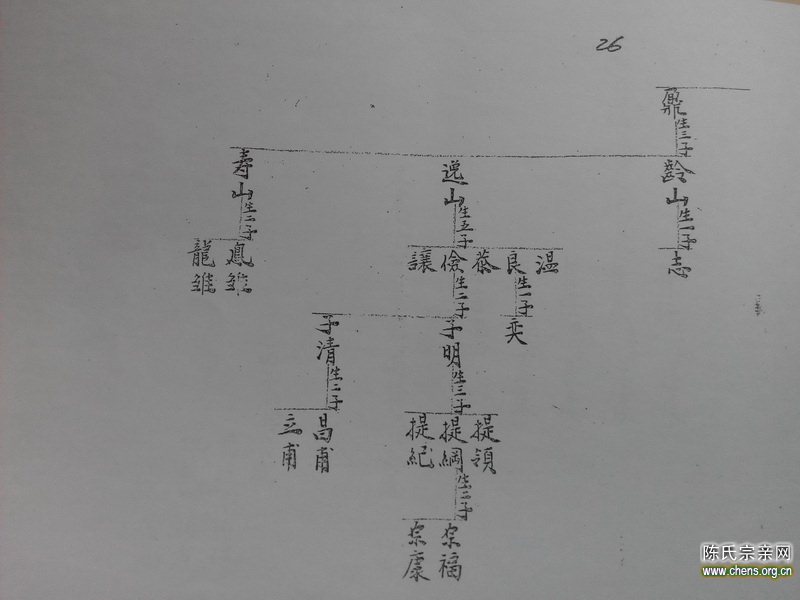 26
鼎生三子
齡山生一子
逸山生五子
寿山生二子
志
温
良生一子
恭
儉生二子
讓
鳳雏
龍雏
奕
子明生三子
子清生二子
提領
提綱生二子
提紀
昌甫
立甫
宗福
宗康
陈氏宗亲网
www.chens.org.cn